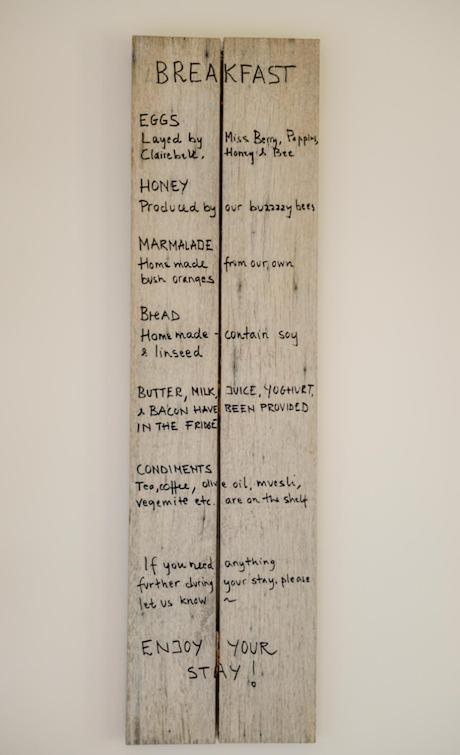 BREAKFAST
EGGS
Layed by Miss Berry, Poppins,
Clairebell, Honey & Bee
HONEY
Produced by our buzzzzy bees
MARMALADE
Home made from our own
bush oranges
BREAD
Home made - contain soy
& linseed
BUTTER, MILK, JUICE, YOGHURT,
& BACON HAVE BEEN PROVIDED
IN THE FRIDGE
CONDIMENTS
Tea, coffee, olive oil, muesli,
vegemite etc. are on the shelf
If you need anything
further during your stay, please
let us know ~
ENJOY YOUR
STAY!